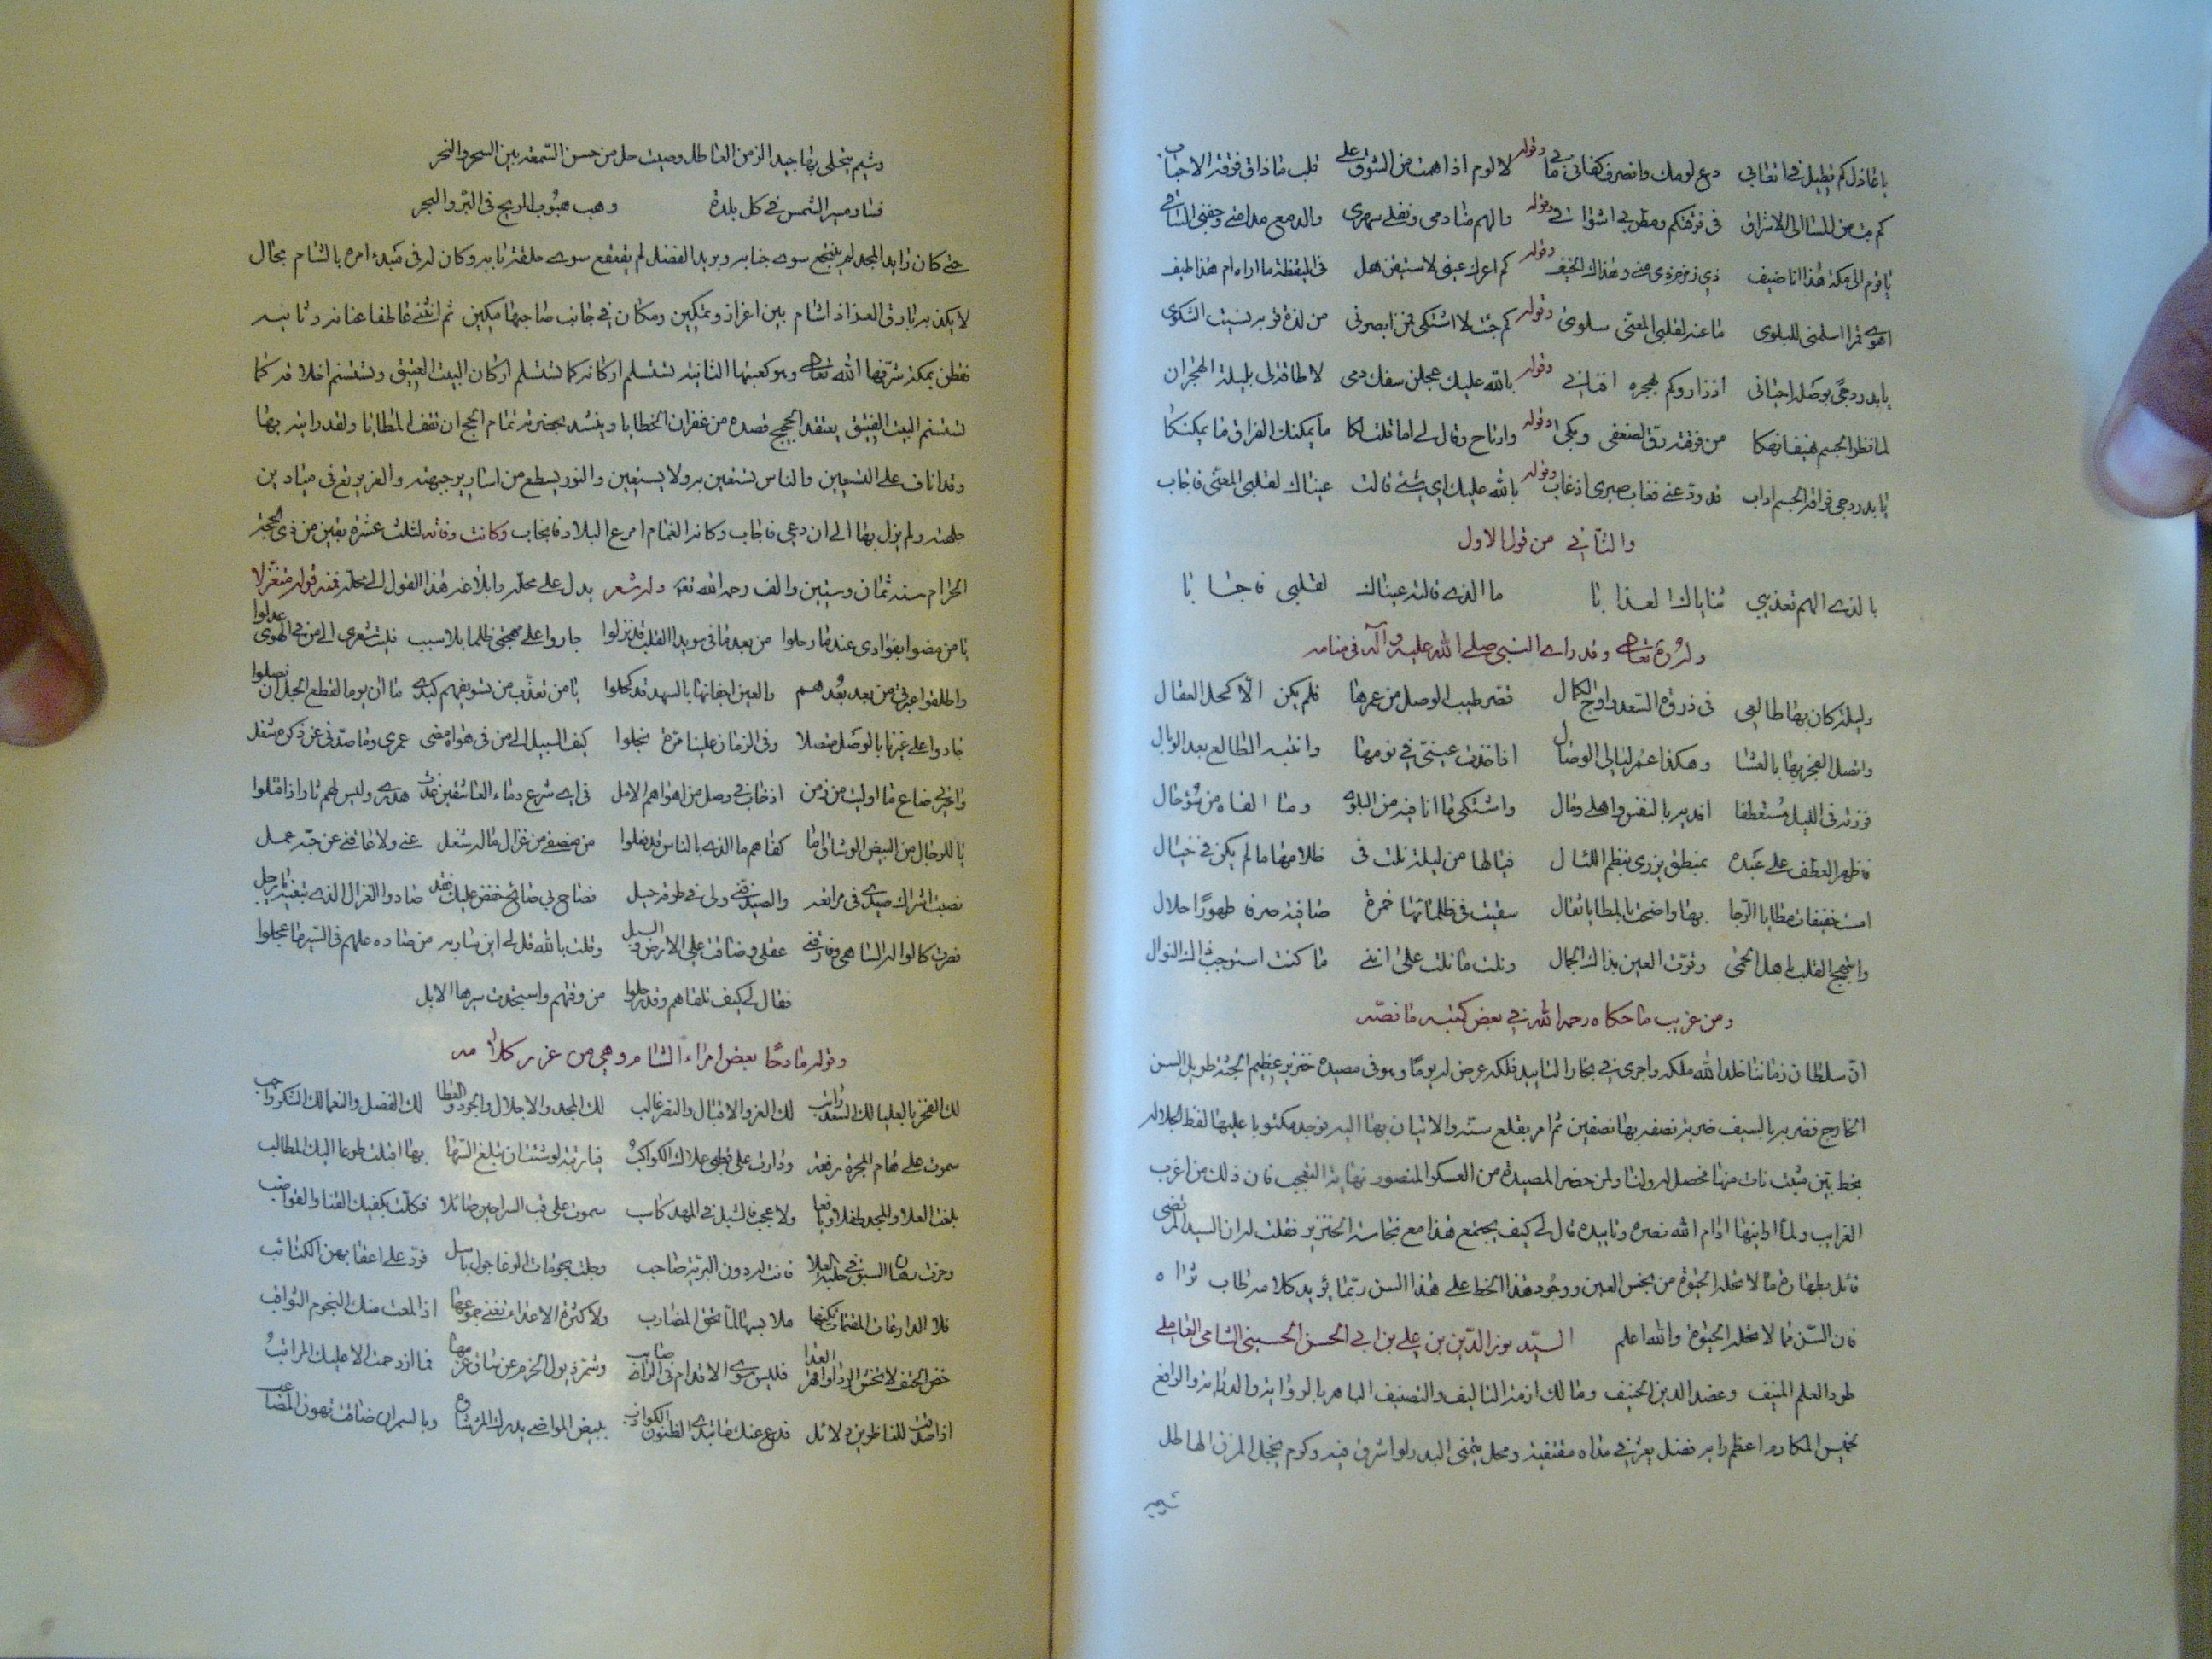 يا عاذل كم تطيل في اتعابي دع لومك وانصرف كفاني ما بي وقوله لا لوم اذا همت من الشوق فلي قلب ما ذاق فرقة الاحباب
كم بت من المسا الى الاشراق في فرقتكم ومطربي اشواقي وقوله والهم منادمي ونقلي سهري والدمع مدامتي وجفني الساقي
يا قوم الى مكة هذا انا ضيف ذي زمزم ذي منى وهذاك الخيف وقوله كم اعرك عيني لاستيقن هل في اليقظة ما اراه ام هذا طيف
اهوى قمرا اسلمني للبلوى ما عنه لقلبي المعنى سلوى وقوله كم جئت لاشتكي فمذ ابصرني من لذة قربه نسيت الشكوى
يا بدر دجى بوصله احياني اذ زار وكم بهجره افناني وقوله بالله عليك عجلن سفك دمي لا طاقة لي بليلة الهجران
لما نظر الجسم منهكا من فرقته رق لضعفي وبكى وقوله وارتاح وقال لي اما قلت لكا ما يمكنك الفراق ما يمكنكا
يا بدر دجى فراقه الجسم اذاب قد ودعني فغاب صبري اذ غاب وقوله بالله عليك اي شيء قالت عيناك لقلبي المعنى فاجاب
والثاني من قول الاول
بالذي الهم تعذيبي ثناياك العذابا ما الذي قالته عيناك لقلبي فاجابا
وله قده تعالى وقد راى النبي صلى الله عليه وآله في منامه
وليلة كان بها طالعي في ذروة السعد واوج الكمال قصر طيب الوصل من عمرها فلم يكن الا كحل العقال
واتصل الفجر بها بالعشا وهكذا عمر ليالي الوصال اذ اخذت عيني في نومها وانتبه الطالع بعد الوبال
فزرته في الليل مستعطفا افديه بالنفس واهلي ومال واشتكي ما انا فيه من البلوى وما القاه من سوء حال
فاظهر العطف على عبده بمنطق يزري بنظم اللئال فيا لها من ليلة نلت في ظلامها ما لم يكن في خيال
امست خفيفات مطايا الرجا بها واضحت بالمطايا ثقال سقيت في ظلمائها خمرة صافية صرفا طهورا حلال
وابتهج القلب باهل الحمى وقرت العين بذاك الجمال ونلت ما نلت على انني ما كنت استوجب ذاك النوال
ومن غريب ما حكاه رحمه الله في بعض كتبه ما نصه
ان سلطان زماننا خلد الله ملكه واجرى في بحار التاييد فلكه عرض له يوما وهو في مصيده خنزير عظيم الجثة طويل السن
الخارج فضربه بالسيف ضربة نصفه بها نصفين ثم امر بقلع سنه والاتيان بها اليه فوجد مكتوبا عليها لفظ الجلالة
بخط بين مثبت نات منها فحصل له ولنا ولمن حضر المصيدة من العسكر المنصور نهاية التعجب فان ذلك من اغرب
الغرايب ولما ارانيها ادام الله نصره وتاييده قال لي كيف يجتمع هذا مع نجاسة الخنزير فقلت له ان السيد المرتضى
قائل بطهارة ما لا تحله الحيوة من نجس العين ووجود هذا الخط على هذا السن ربما يؤيد كلامه طاب ثراه
فان السن مما لا تحله الحيوة والله اعلم السيد نور الدين بن علي بن ابي الحسن الحسيني الشامي العاملي
طود العلم المنيف وعضد الدين الحنيف ومالك ازمة التاليف والتصنيف الباهر بالرواية والدراية والرافع
لخميس المكارم اعظم راية فضل يعثر في مداه مقتفيه ومحل يتمنى البدر لو اشرق فيه وكرم يخجل المزن الهاطل
وشيم
وشيم يتحلى بها جيد الزمن العاطل وصيت حل من حسن السمعة بين السحر والنحر
فسار مسير الشمس في كل بلدة وهب هبوب الريح في البر والبحر
حتى كان رايد المجد لم ينتجع سوى جنابه وبريد الفضل لم يقعقع سوى حلقة بابه وكان له في مبدء امره بالشام مجال
لا يكذبه بارق العز اذا شام بين اعزاز وتمكين ومكان في جانب صاحبها مكين ثم انثنى عاطفا عنانه وثانيه
فقطن بمكة شرفها الله تعالى وهو كعبتها الثانية تستلم اركانه كما تستلم اركان البيت العتيق وتستشم اخلاقه كما
تستشم المسك الفتيق يعتقد الحجيج قصده من غفران الخطايا وينشد بحضرته تمام الحج ان تقف المطايا ولقد رايته بها
وقد اناف على التسعين والناس تستعين به ولا يستعين والنور يسطع من اسارير جبهته والعز يرتع في ميادين
جلهته ولم يزل بها الى ان دعي فاجاب وكانه الغمام امرع البلاد فانجاب وكانت وفاته لثلث عشرة بقين من ذي الحجة
الحرام سنة ثمان وستين والف رحمه الله تعالى وله شعر يدل على محله وابلاغه هذا القول الى محله فمنه قوله متغزلا
يا من مضوا بفؤادي عندما رحلوا من بعد ما في سويدا القلب قد نزلوا جاروا على مهجتي ظلما بلا سبب فليت شعري الى من في الهوى عدلوا
واطلقوا عبرتي من بعد بعدهم والعين اجفانها بالسهد قد كحلوا يا من تعذب من تسويفهم كبدي ما ان يوما لقطع الحبل ان تصلوا
جادوا على غيرنا بالوصل متصلا وفي الزمان علينا مرة بخلوا كيف السبيل الى من في هواه مضى عمري وما صدني عن ذكره شغل
واحيرتي ضاع ما اوليت من زمن اذ خاب في وصل من اهواهم الامل في اي شرع دماء العاشقين غدت هدرى وليس لهم ثار اذا قتلوا
يا للرجال من البيض الرشاق اما كفاهم ما الذي بالناس قد فعلوا من منصفي من غزال ما له شغل عني ولا عاقني عن حبه عمل
نصبت اشراك صيدي في مراتعه والصيد فني ولي في طرقه حيل فصاح بي صائح خفض عليك فقد صادوا الغزال الذي تبغيه يا رجل
فصرت كالواله الساهي وفارقني عقلي وضاقت علي الارض والسبل وقلت بالله قل لي اين سار به من صاده علهم في السير ما عجلوا
فقال لي كيف تلقاهم وقد رحلوا من وقتهم واستجدت سيرها الابل
وقوله مادحا بعض امراء الشام وهي من غرر كلامه
لك الفخر بالعليا لك السعد راتب لك العز والاقبال والنصر غالب لك المجد والاجلال والجود والعطا لك الفضل والنعما لك الشكر واجب
سموت على هام المجرة رفعة ودارت على قطبي علاك الكواكب فيا رتبة لو شئت ان تبلغ السها بها اقبلت طوعا اليك المطالب
بلغت العلا والمجد طفلا ويافعا ولا عجب فالشبل في المهد كاسب سموت على قب السراحين صائلا فكلت بكفيك القنا والقواضب
وحزت رهان السبق في حلبة العلا فانت لها دون البرية صاحب وجلت بحومات الوغا جول باسل فردت على اعقابهن الكتائب
فلا الدارعات المقنعات تكنها ملابسها لما تحق المضارب ولا كثرة الاعداء تغني جموعها اذا لمعت منك النجوم الثواقب
خض الحتف لا تخش الردا واقهر العدا فليس سوى الاقدام في الراي صايب وشمر ذيول الحزم عن ساق عزمها فما ازدحمت الا عليك المراتب
اذا صدقت للناظرين دلائل فدع عنك ما تبدي الظنون الكواذب ببيض المواضي يدرك المرء شاوه وبالسمر ان ضاقت تهون المصاعب